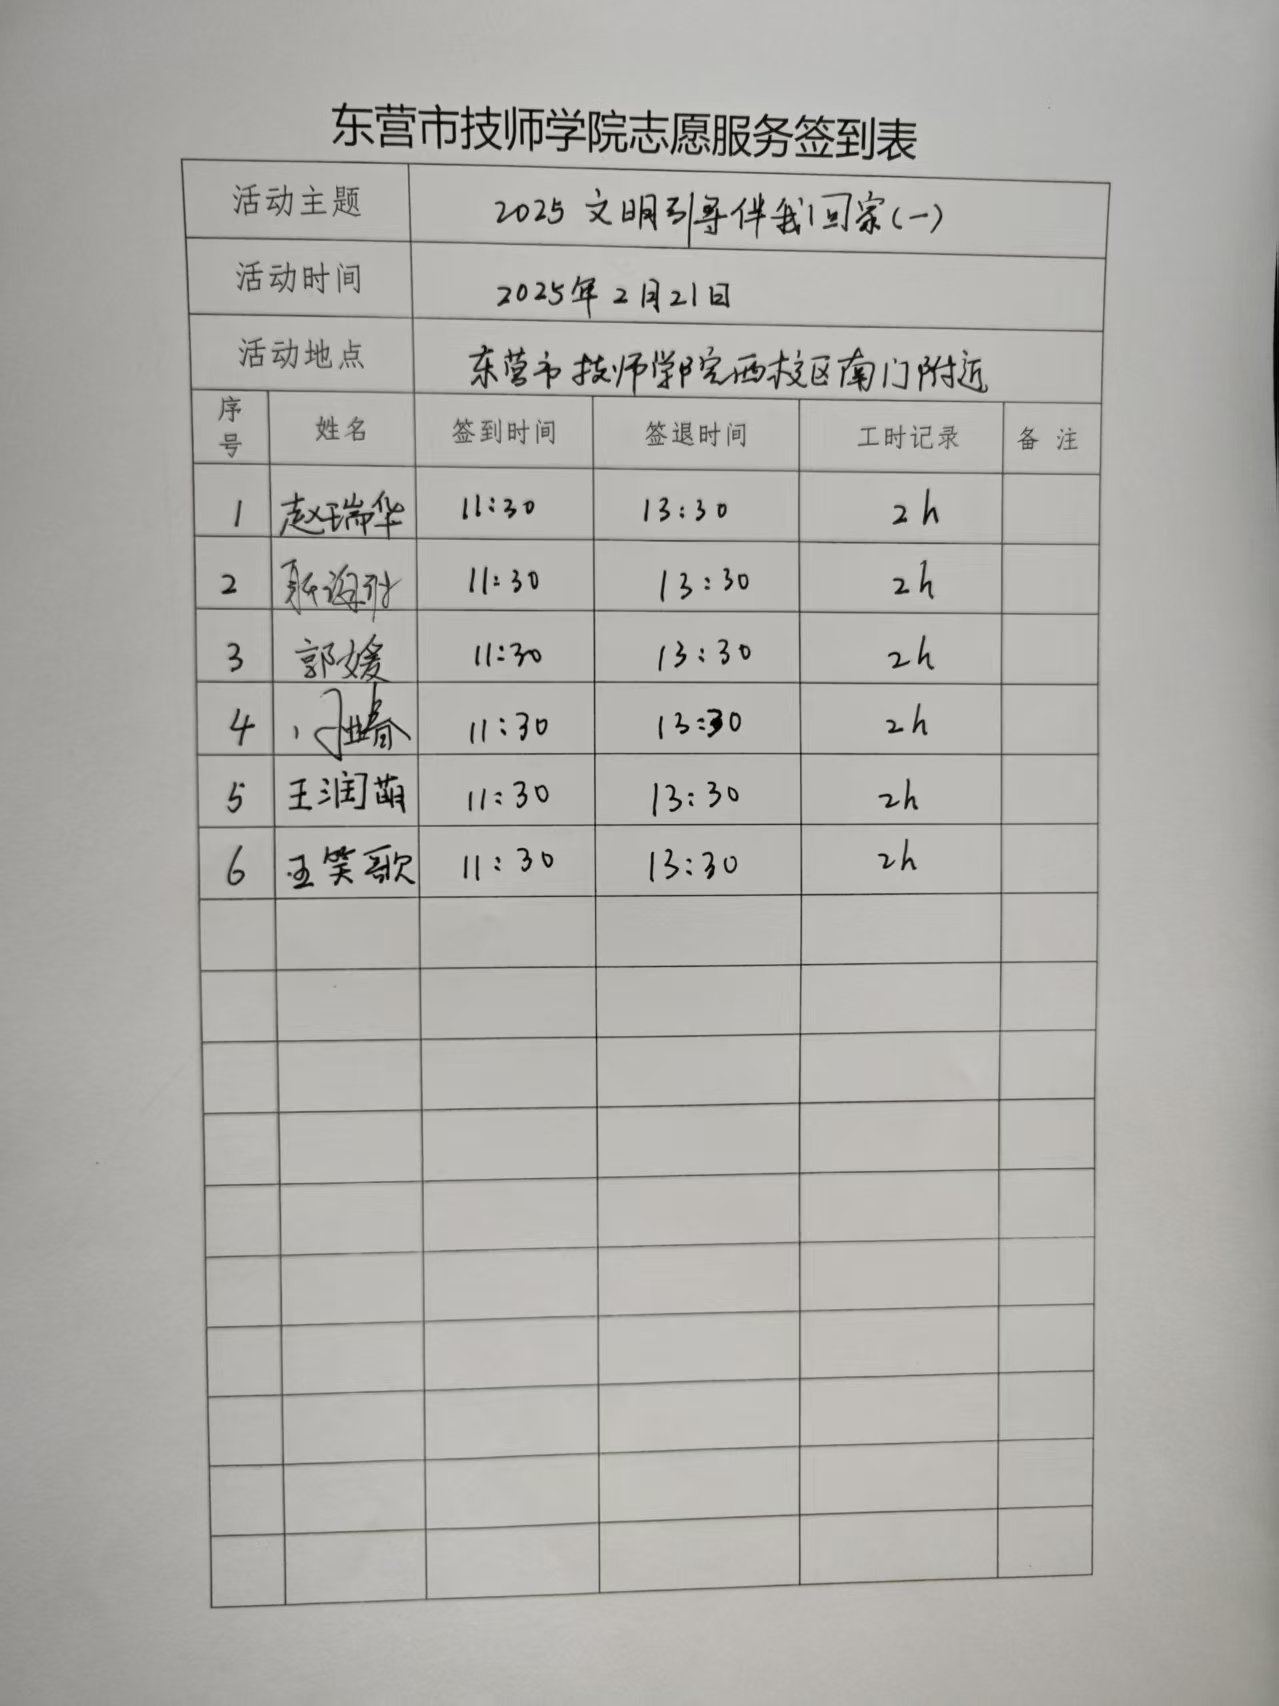 东营市技师学院志愿服务签到表
活动主题 2025 文明引导伴我回家(一)
活动时间 2025年2月21日
活动地点 东营市技师学院西校区南门附近
序号 姓名 签到时间 签退时间 工时记录 备 注
1 赵瑞华 11:30 13:30 2h
2 11:30 13:30 2h
3 郭媛 11:30 13:30 2h
4 11:30 13:30 2h
5 王润萌 11:30 13:30 2h
6 王笑歌 11:30 13:30 2h